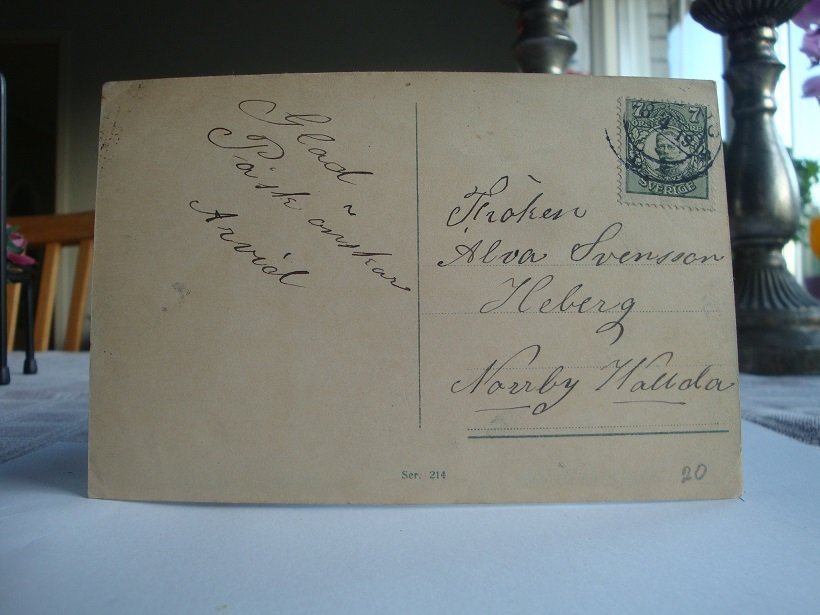 Glad
Påsk önskar
Arvid
7 7
SVERIGE
Fröken
Alva Svensson
Heberg
Norrby Vallda
Ser. 214
20